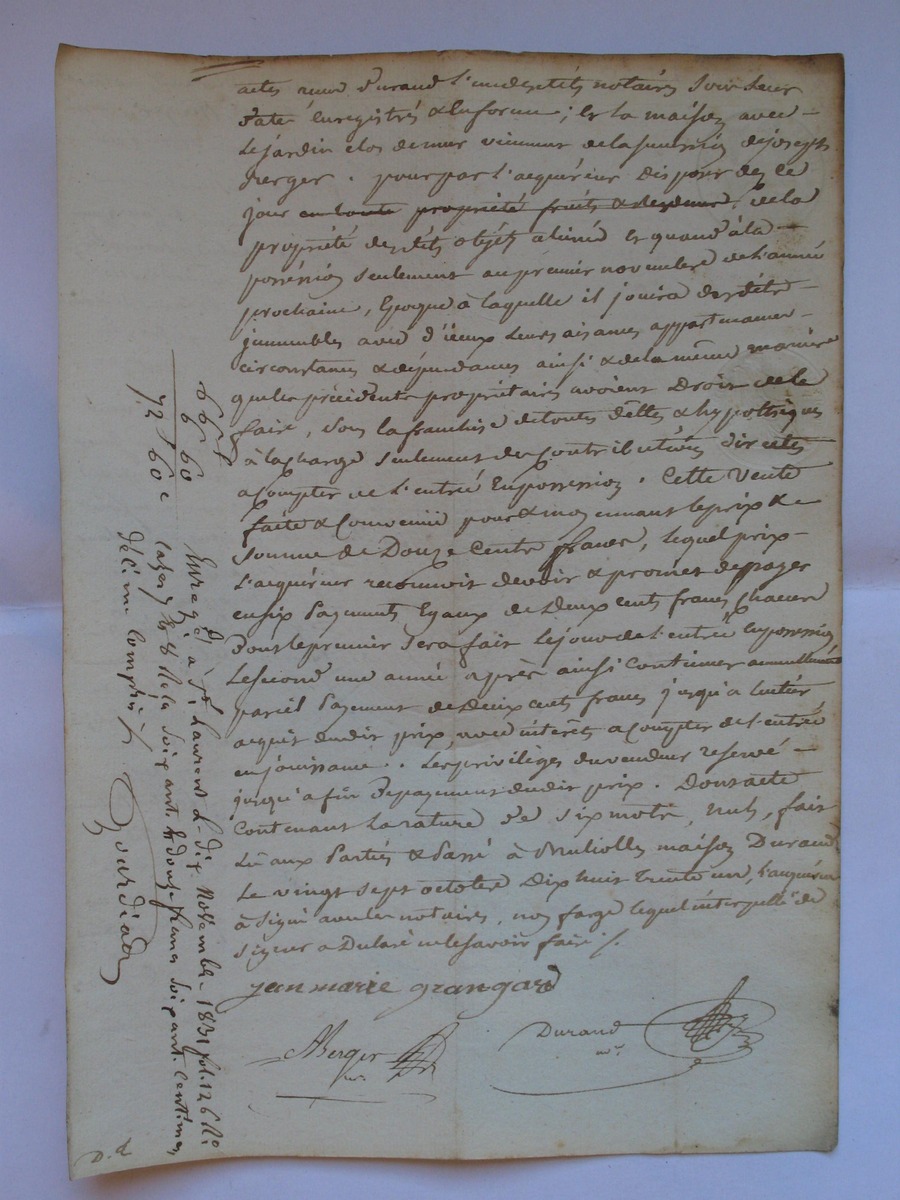 actes reçus Durand l'un desdits notaires sous leur
date enregistrés & en forme ; et la maison avec
le jardin clos de mur venmus de la succession de joseph
Berger . pour par l'acquéreur disposer des ce
jour en toute propriété fruits & revenus, de la
propriété desdits objets aliéné et quand à la
possession seulement au premier novembre de l'année
prochaine, Epoque à laquelle il jouira desdits
immeubles avec d'iceux leurs aisances appartenances
circonstances & dépendances ainsi & de la même manière
que les précédents propriétaires avoient Droit de le
faire, sous la franchise de toutes dêttes & hypothèques
à la charge seulement des Contributions directes
a Compter de l'entrée En possession . Cette Vente
faite & Convenüe pour & moyennant le prix & 
somme de Douze Cents francs, lequel prix
l'acquéreur reconnoit devoir & promet de payer
en six Payements Egaux de deux cents francs Chacun
Dont le premier Sera fait le jour de l'entrée En possession
le second une année après ainsi Continuer annuellement
pareil Payement de deux cents francs jusqu'a Entier
acquit dudit prix, avec intérêts a Compter de l'entrée
en jouissance . . Les privilèges du vendeur reservé
jusqu'a fin de payement dudit prix . Dont acte
Contenant la rature de six mots, nuls, fait
Lû aux Parties & Passé à maison Durand
le vingt sept octobre Dix huit trente un, l'acquéreur
à Signé avec les notaires, non farge lequel interpellé de
signer a Déclaré ne le savoir faire ./.
jean marie grangard
Berger
nre
Durand
nre
66 f
6 60
72 f 60 c
Enregé à St Laurent le dix Novembre 1831 fol. 126 Ro
cases 7 & 8 Reçu soixante & douze francs soixante centimes
décime compris ./.
D. d